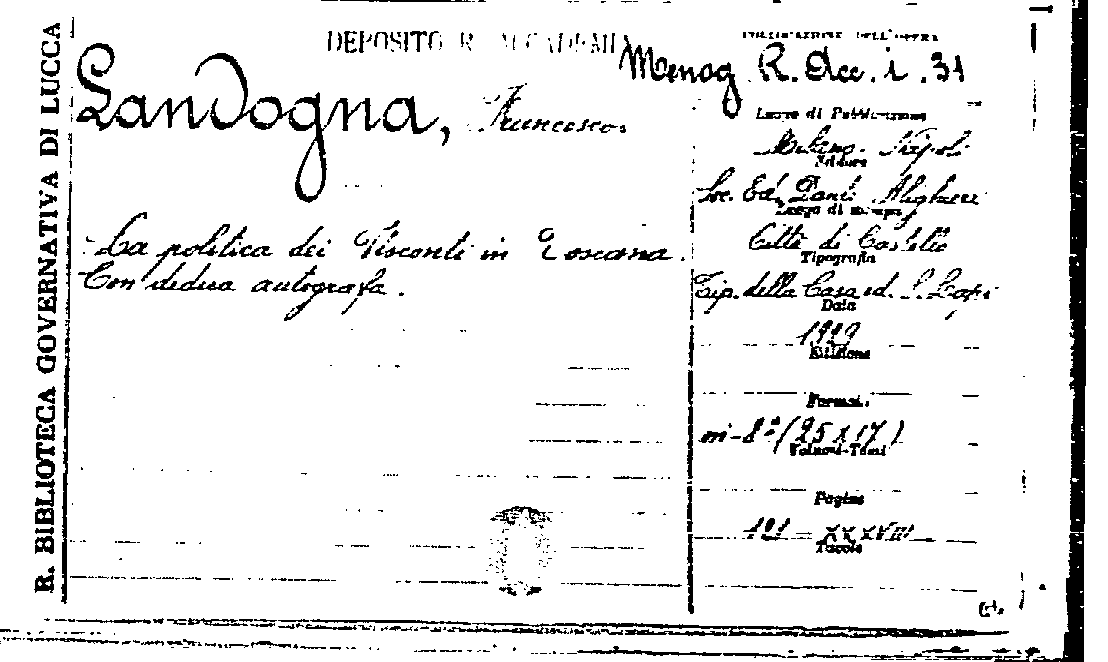 R. BIBLIOTECA GOVERNATIVA DI LUCCA
DEPOSITO R. ACCADEMIA
COLLOCAZIONE DELL'OPERA
Menog R. Acc. i. 31
Landogna, Francesco.
La politica dei Visconti in Toscana.
Con dedica autografa.
Luogo di Pubblicazione
Milano. Napoli
Editore
Soc. Ed. Dante Alighieri
Luogo di stampa
Città di Castello
Tipografia
Tip. della Casa ed. S. Lapi
Data
1929
Edizione
Formato
in-8° (25 x 17)
Volumi-Tomi
Pagine
101 - XXXVIII
Tavole